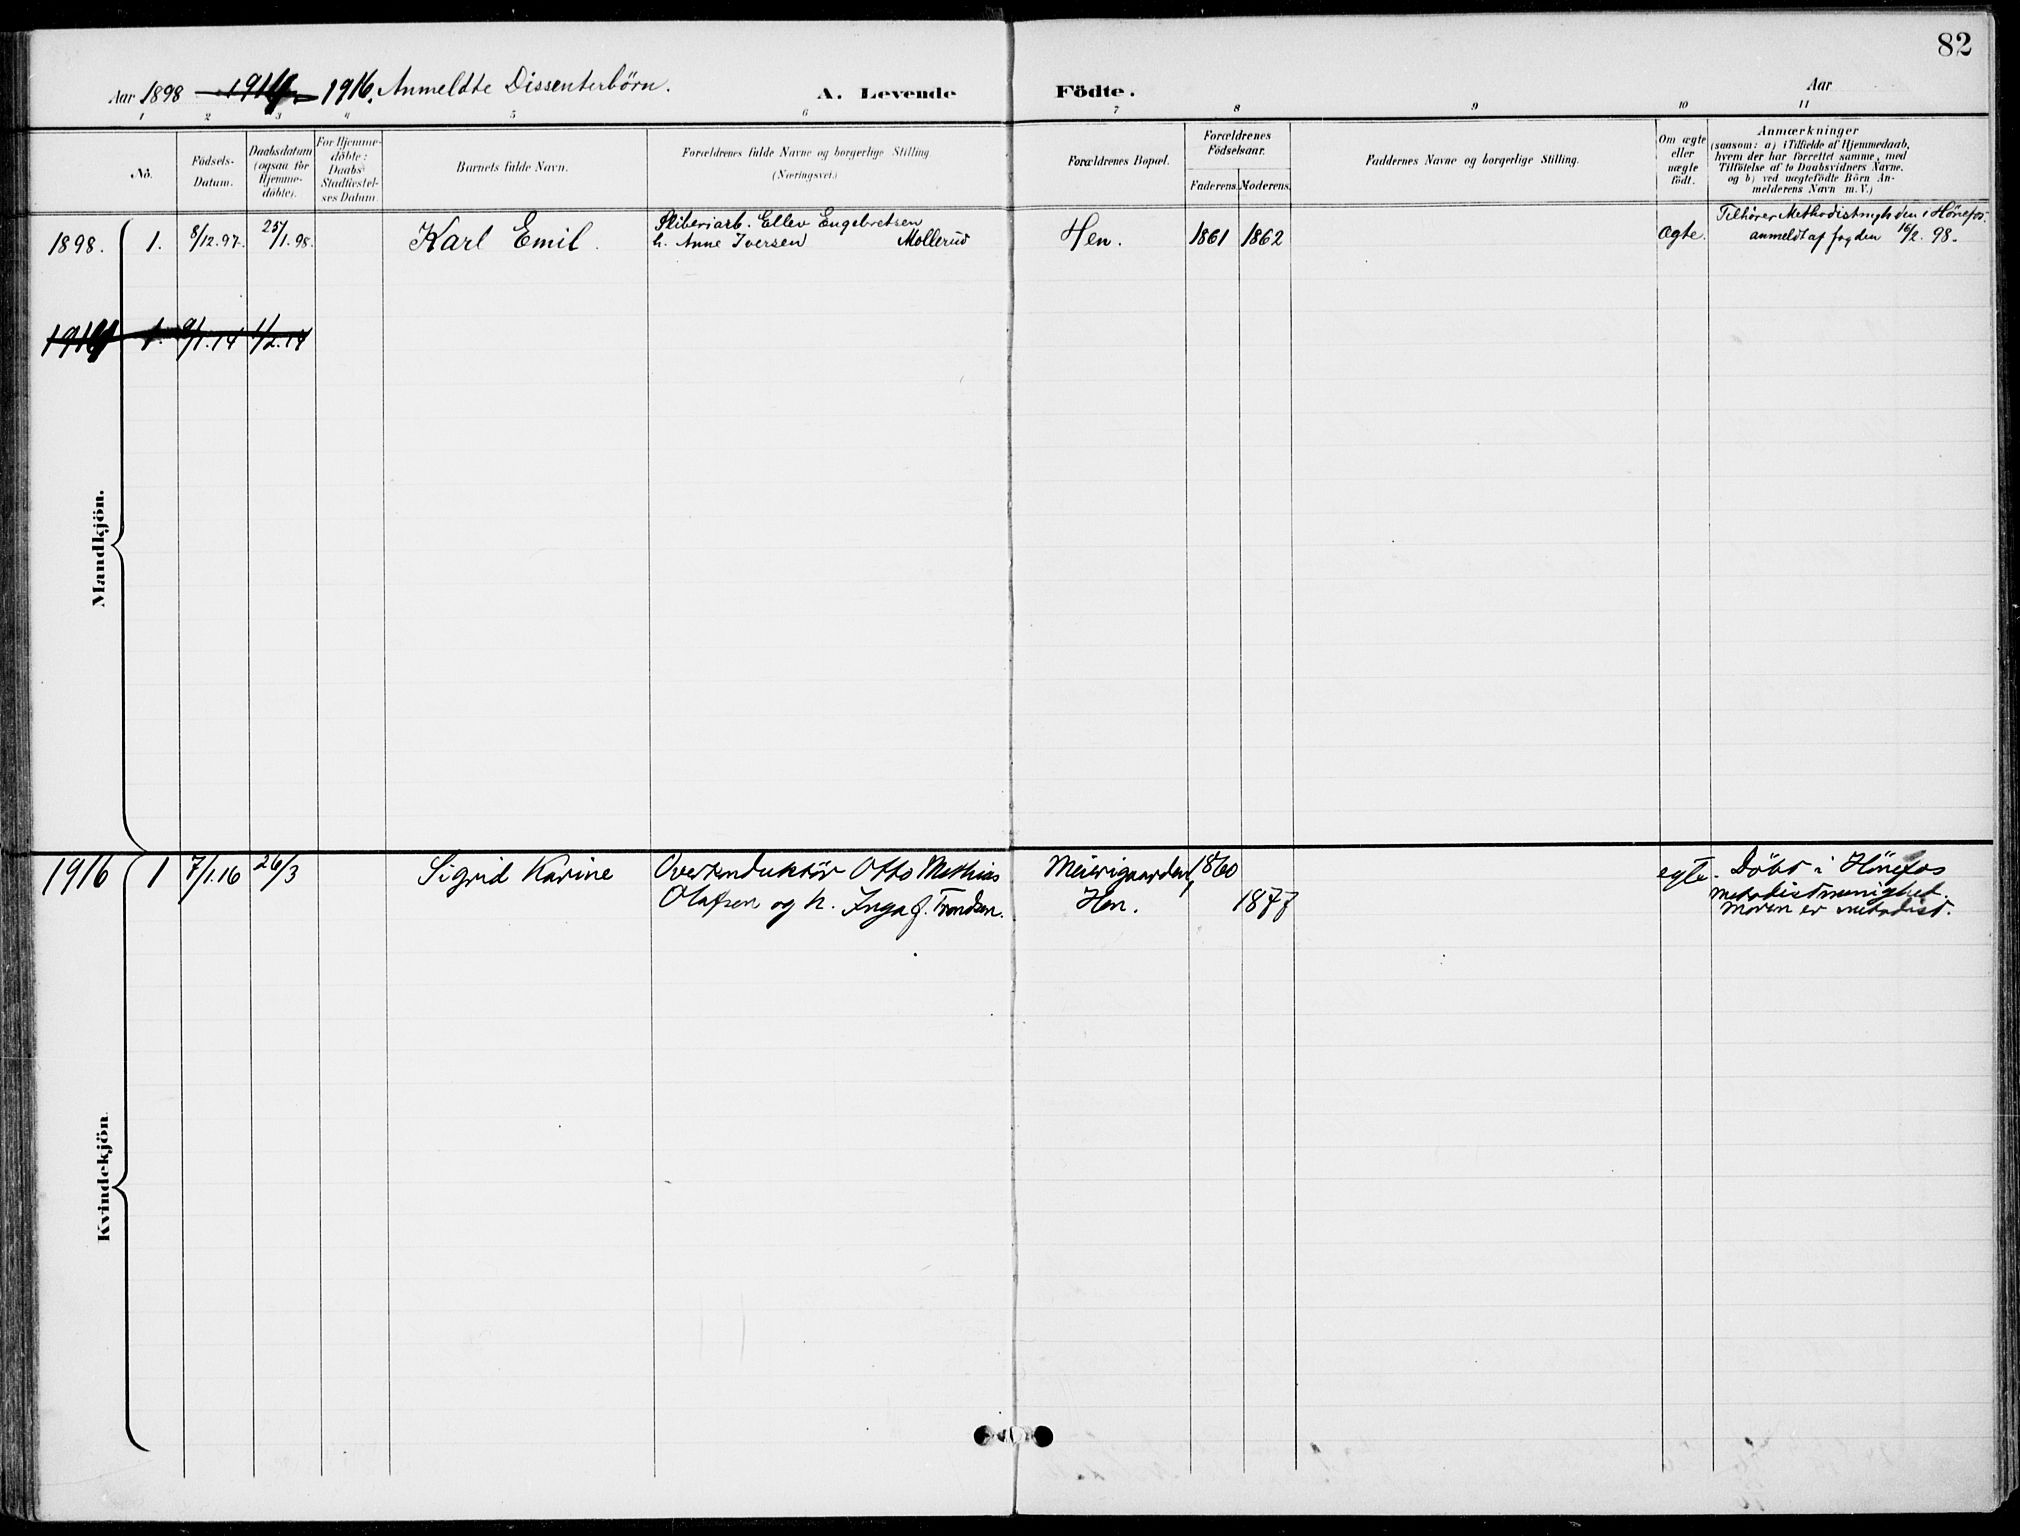 82
Aar 1898 1914 – 1916. Anmeldte Dissenterbørn. A. Levende Födte. Aar
1 2 3 4 5 6 7 8 9 10 11
No.
Födsels-
Datum.
Daabsdatum
(ogsaa for
Hjemme-
döbte).
For Hjemme-
döbte:
Daabs
Stadfæstel-
ses Datum.
Barnets fulde Navn.
Forældrenes fulde Navne og borgerlige Stilling
(Næringsvei.)
Forældrenes Bopæl.
Forældrenes
Födselsaar.
Faderens. Moderens.
Faddernes Navne og borgerlige Stilling.
Om ægte
eller
uægte
födt.
Anmærkninger
(saasom: a) i Tilfælde af Hjemmedaab,
hvem der har forrettet samme, med
Tilföielse af to Daabsvidners Navne,
og b) ved uægtefödte Börn An-
melderens Navn m. V.)
Mandkjön.
1898. 1. 8/12.97. 25/1.98. Karl Emil. Sliberiarb. Ellev Engebretsen
h. Anne Iversen Mollerud
Hen. 1861 1862 Ægte.
Tilhører Methodistmgh den i Hönefos.
anmeldt af fogden 16/2. 98.
1914 1. 9/1.14 1/2.14
Kvindekjön
1916 1 7/1.16 26/3 Sigrid Karine Overkonduktör Otto Mathias
Olafsen og h. Inga f. Trondsen.
Meierigaarden, 1860
Hen. 1877
egte. Döbt i Hönefos
metodistmenighed.
Moren er metodist.